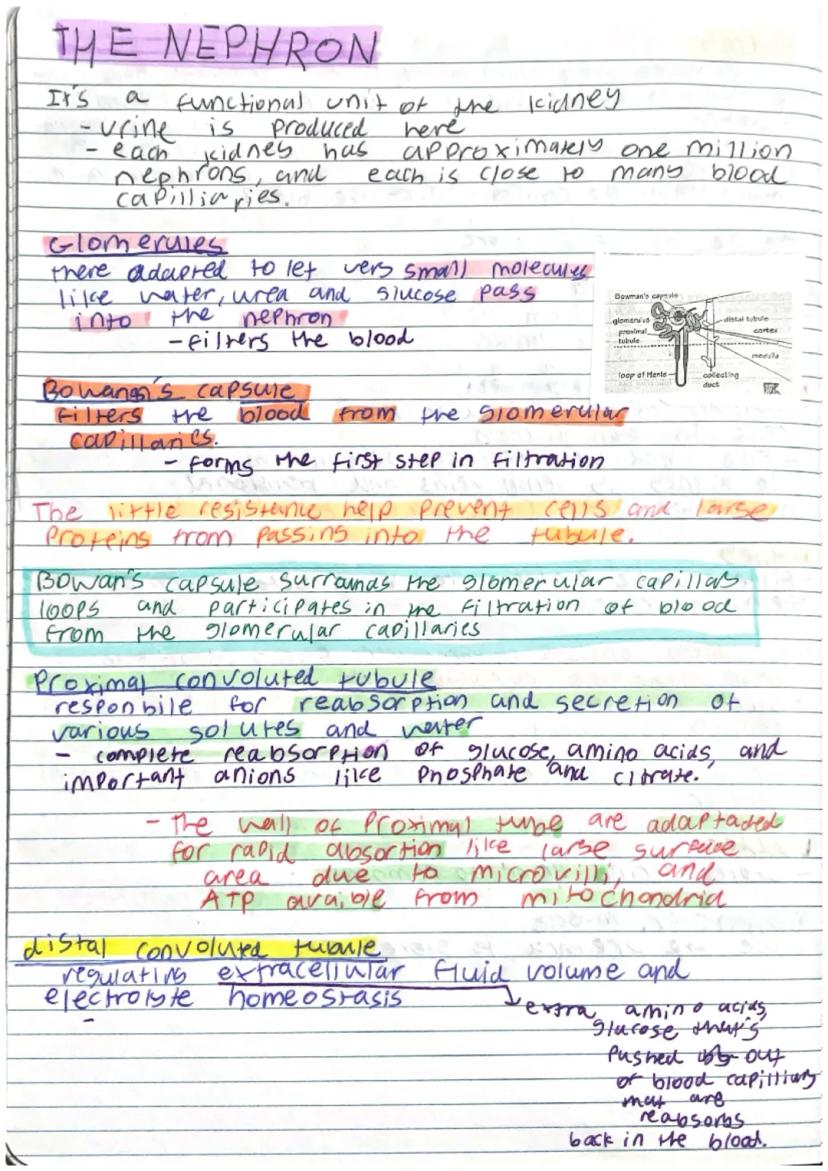 THE NEPHRON
It's a functional unit of the kidney
- urine is produced here
- each kidney has approximately one million
nephrons, and each is close to many blood
capilliaries.
Glomerules
there adapted to let very small molecules
like water, urea and glucose pass
into the nephron
- filters the blood
Bowman's capsule
glomerulus
proximal
tubule
loop of Henle
distal tubule
cortex
medulla
collecting
duct
Bowangs's capsule
filters the blood from the glomerular
capillaries.
- forms the first step in filtration
The little resistance help prevent cells and large
proteins from passing into the tubule.
Bowan's capsule surrounds the glomerular capillary
loops and participates in the filtration of blood
from the glomerular capillaries
Proximal convoluted tubule
responbile for reabsorption and secretion of
various solutes and water
- complete reabsorption of glucose, amino acids, and
important anions like phosphate and citrate.
- The wall of proximal tube are adaptaded
for rapid absortion like large surface
area due to microvilli, and
ATP avaible from mitochondria
distal convoluted tubule
regulating extracellular fluid volume and
electrolyte homeostasis
extra amino acids,
glucose that's
pushed out
of blood capilliary
that are
reabsorbs
back in the blood.